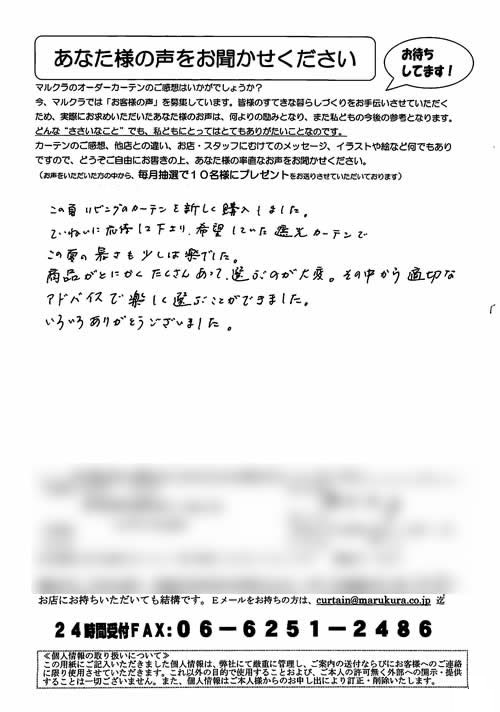 あなた様の声をお聞かせください
お待ち
してます！
マルクラのオーダーカーテンのご感想はいかがでしょうか？
今、マルクラでは「お客様の声」を募集しています。皆様のすてきな暮らしづくりをお手伝いさせていただく
ため、実際にお求めいただいたあなた様のお声は、何よりの励みとなり、また私どもの今後の参考となります。
どんな“ささいなこと”でも、私どもにとってはとてもありがたいことなのです。
カーテンのご感想、他店との違い、お店・スタッフにむけてのメッセージ、イラストや絵など何でもあり
ですので、どうぞご自由にお書きの上、あなた様の率直なお声をお聞かせください。
（お声をいただいた方の中から、毎月抽選で１０名様にプレゼントをお送りさせていただいております）
この夏リビングのカーテンを新しく購入しました。
ていねいに応待して下さり、希望していた遮光カーテンで
この夏の暑さも少しは楽でした。
商品がとにかくたくさんあって、選ぶのが大変。その中から適切な
アドバイスで楽しく選ぶことができました。
いろいろありがとうございました。
お店にお持ちいただいても結構です。Ｅメールをお持ちの方は、curtain@marukura.co.jp 迄
２４時間受付ＦＡＸ：０６－６２５１－２４８６
≪個人情報の取り扱いについて≫
この用紙にご記入いただきました個人情報は、弊社にて厳重に管理し、ご案内の送付ならびにお客様へのご連絡
に限り使用させていただきます。これ以外の目的で使用することおよび、ご本人の許可無く外部への開示・提供
することは一切ございません。また、個人情報はご本人様からのお申し出により訂正・削除いたします。